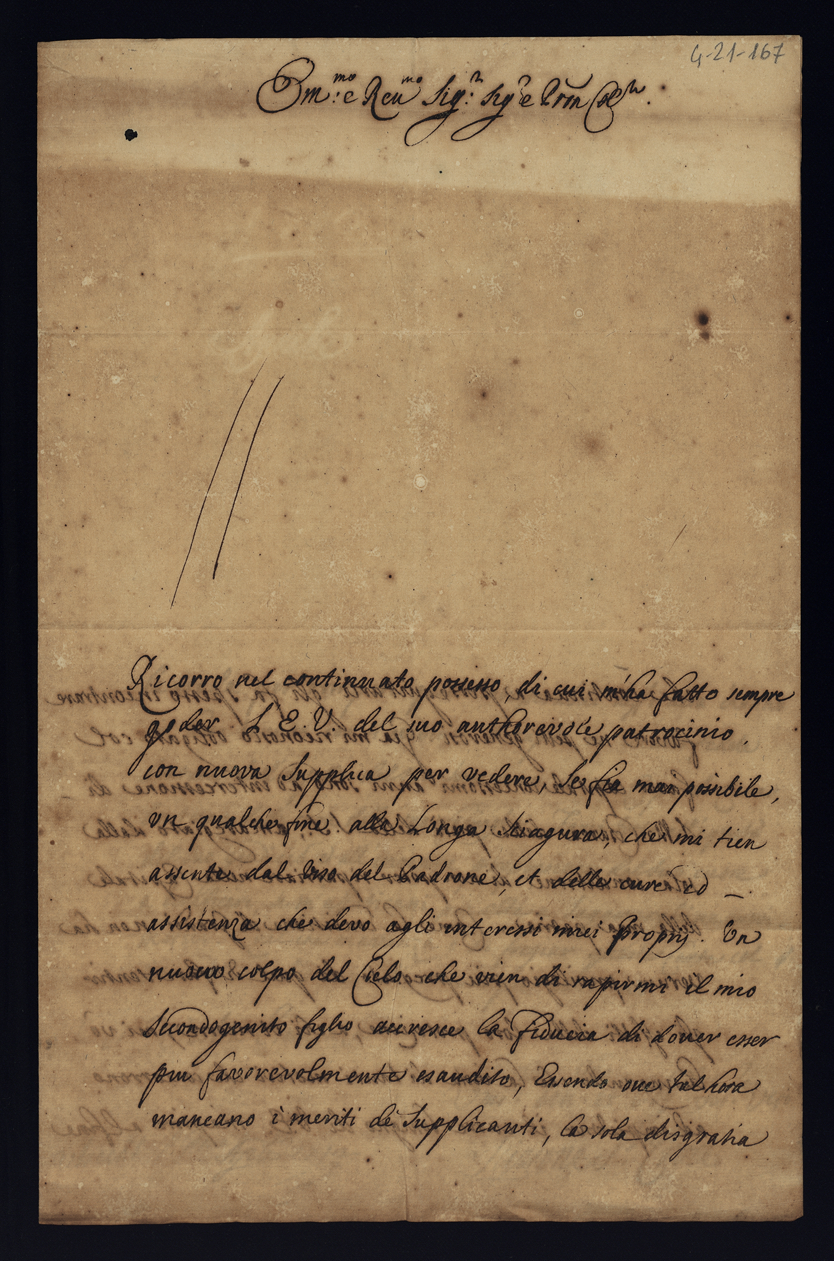 4-21-167
Em.mo e Reu.mo Sig.r Sig.r e Pron Col.mo
Ricorro nel continuato possesso, di cui m'ha fatto sempre
goder l'E. V. del suo authorevole patrocinio,
con nuova supplica per vedere, se sia mai possibile,
un qualche fine alla longa sciagura, che mi tien
assente dal viso del Padrone, et dalle cure ed
assistenza che devo agli interessi miei proprij. Un
nuovo colpo del Cielo che vien di rapirmi il mio
secondogenito figlio accresce la fiducia di dover esser
piu favorevolmente esaudito, Essendo ove tal hora
mancano i meriti de Supplicanti, la sola disgratia